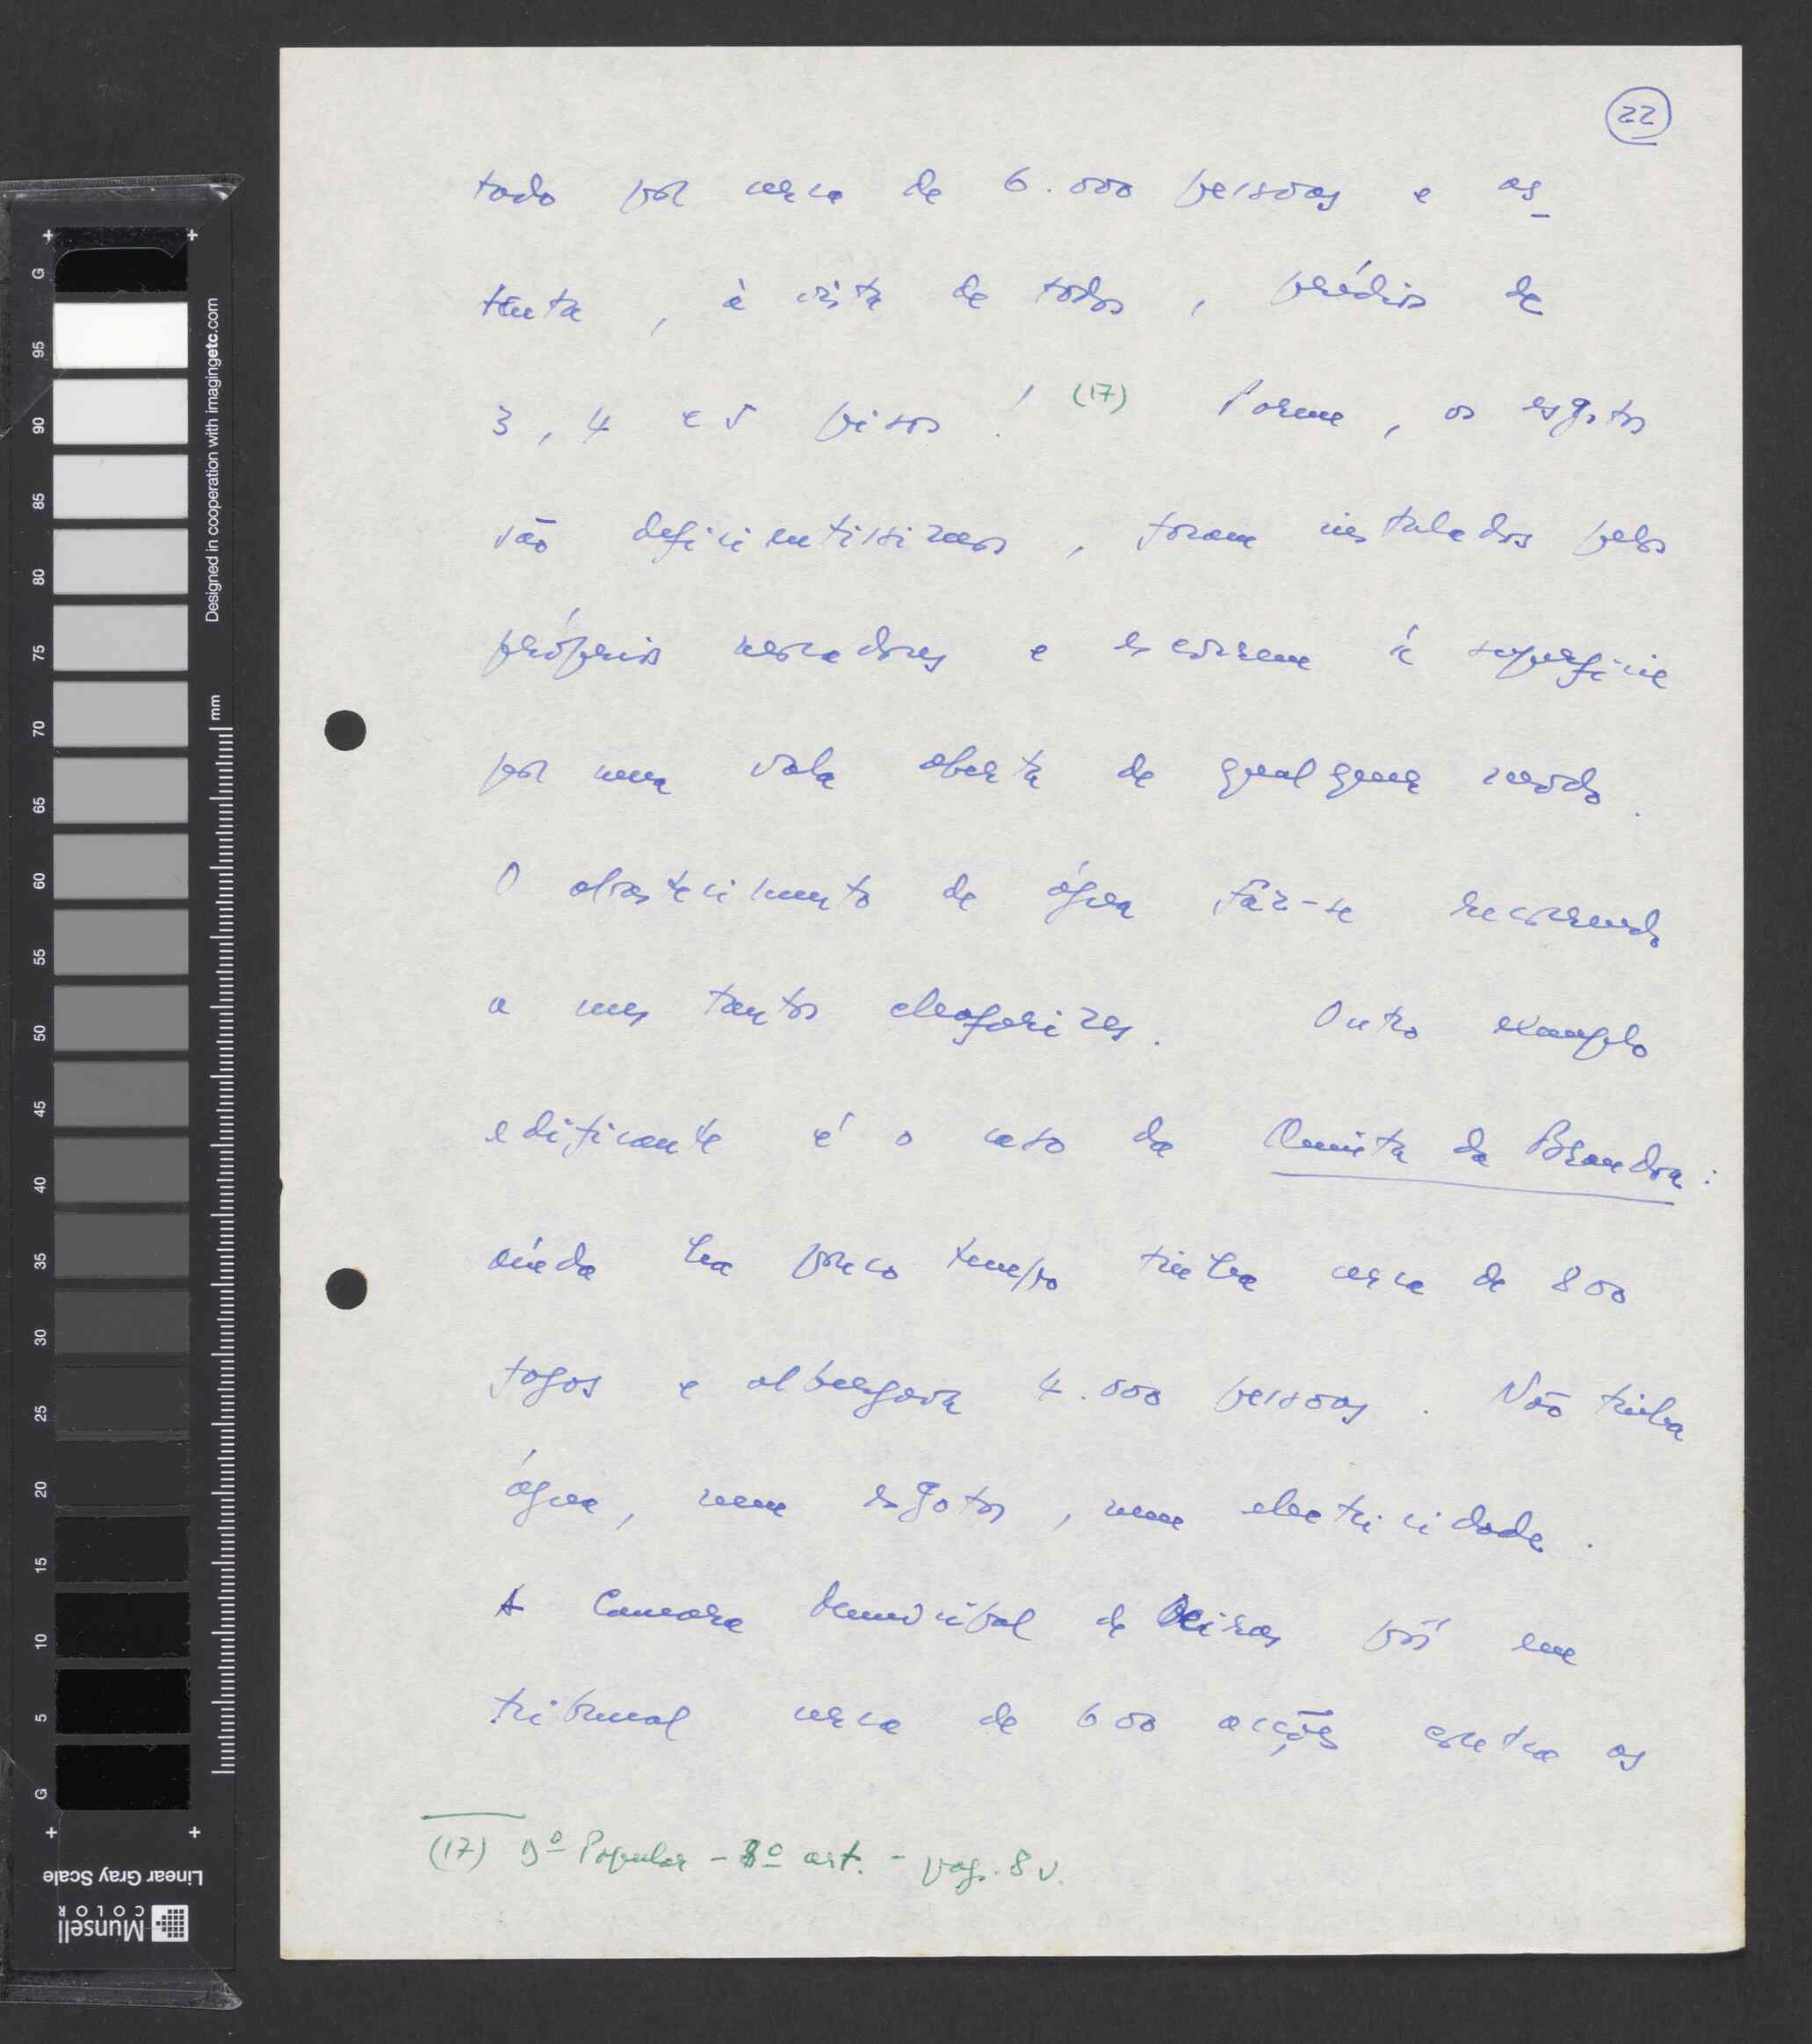 22
tado por cerca de 6.000 pessoas e os_
tenta, à vista de todos, prédios de
3, 4 e 5 pisos! (17) Porem, os esgotos
são deficientissimos, foram instalados pelos
próprios moradores e escorrem à superficie
por uma vala aberta de qualquer modo.
O abastecimento de água faz-se recorrendo
a uns tantos chafarizes. Outro exemplo
edificante é o caso da Quinta da Brandoa:
ainda ha pouco tempo tinha cerca de 800
fogos e albergava 4.000 pessoas. Não tinha
água, nem esgotos, nem electricidade.
A Camara Municipal de Oeiras pôs em
tribunal cerca de 600 acções contra os
(17) Dº Popular - 8º art. - pag. 8 v.
G 95 90 85 80 75 70 65 60 55 50 45 40 35 30 25 20 15 10 5 G
mm
Designed in cooperation with imagingetc.com
Linear Gray Scale
Munsell
COLOR